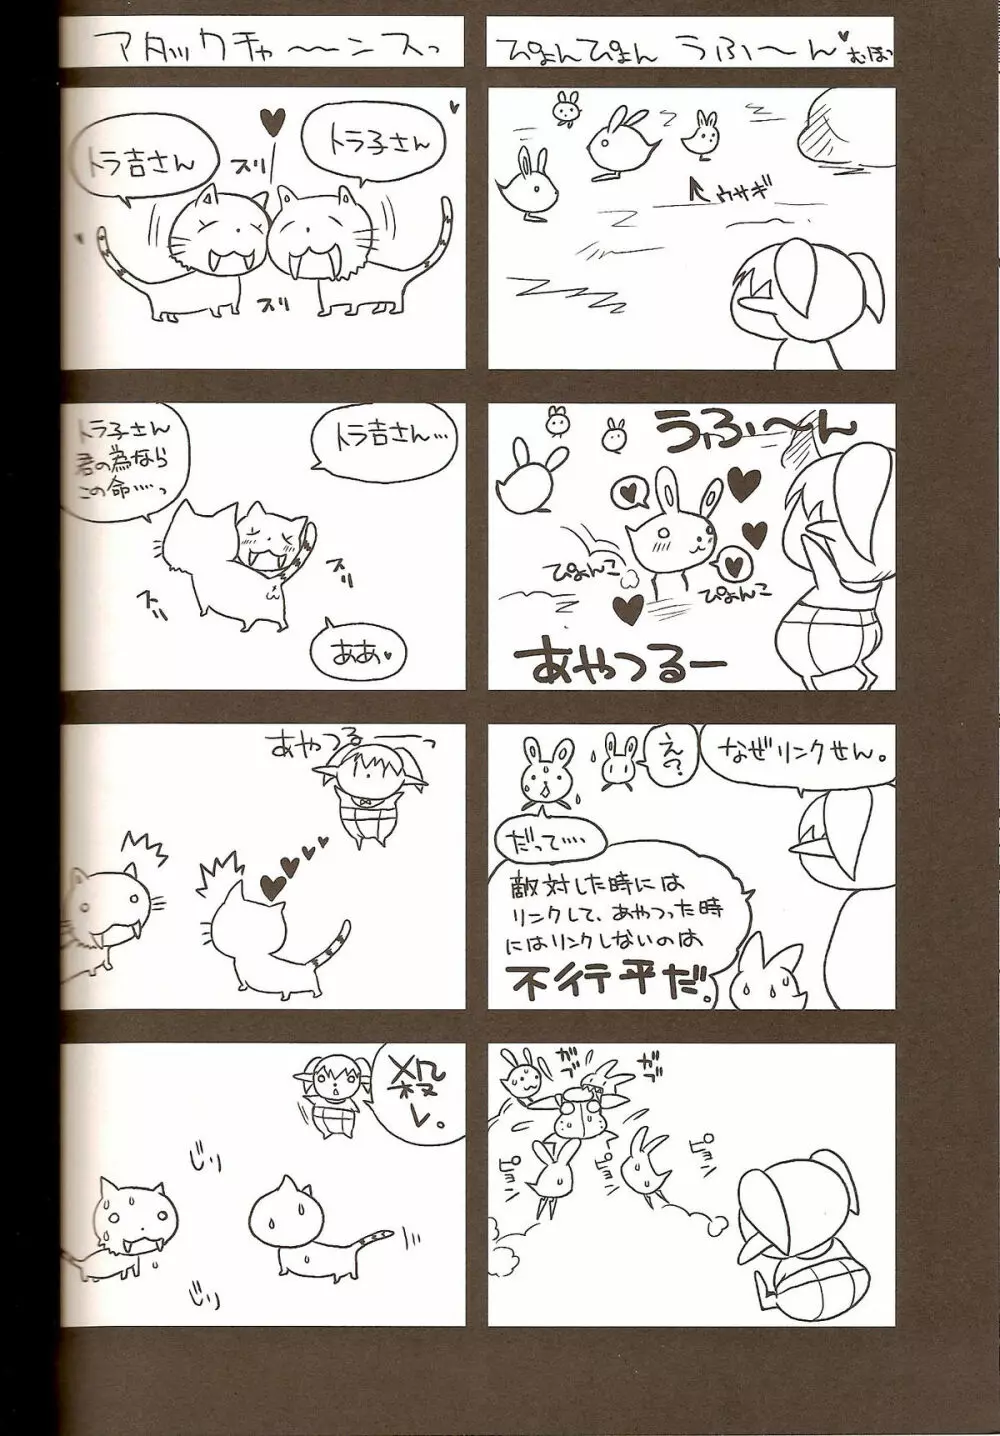 ぴょんぴょん うふ〜ん♥むほっ
ウサギ
うふ〜ん
ぴょんこ
ぴょんこ
あやつるー
なぜリンクせん。
え?
だって‥‥
敵対した時には
リンクして、あやつった時
にはリンクしないのは
不行平だ。
ガブ
ガブ
ピョン
ピョン
ピョン
アタックチャ〜〜ンスっ
トラ子さん
トラ吉さん
ズリ
ズリ
トラ吉さん…
トラ子さん
君の為なら
この命‥‥っ
ズリ
ズリ
ああ♥
あやつるーーっ
殺
レ。
じリ
じリ